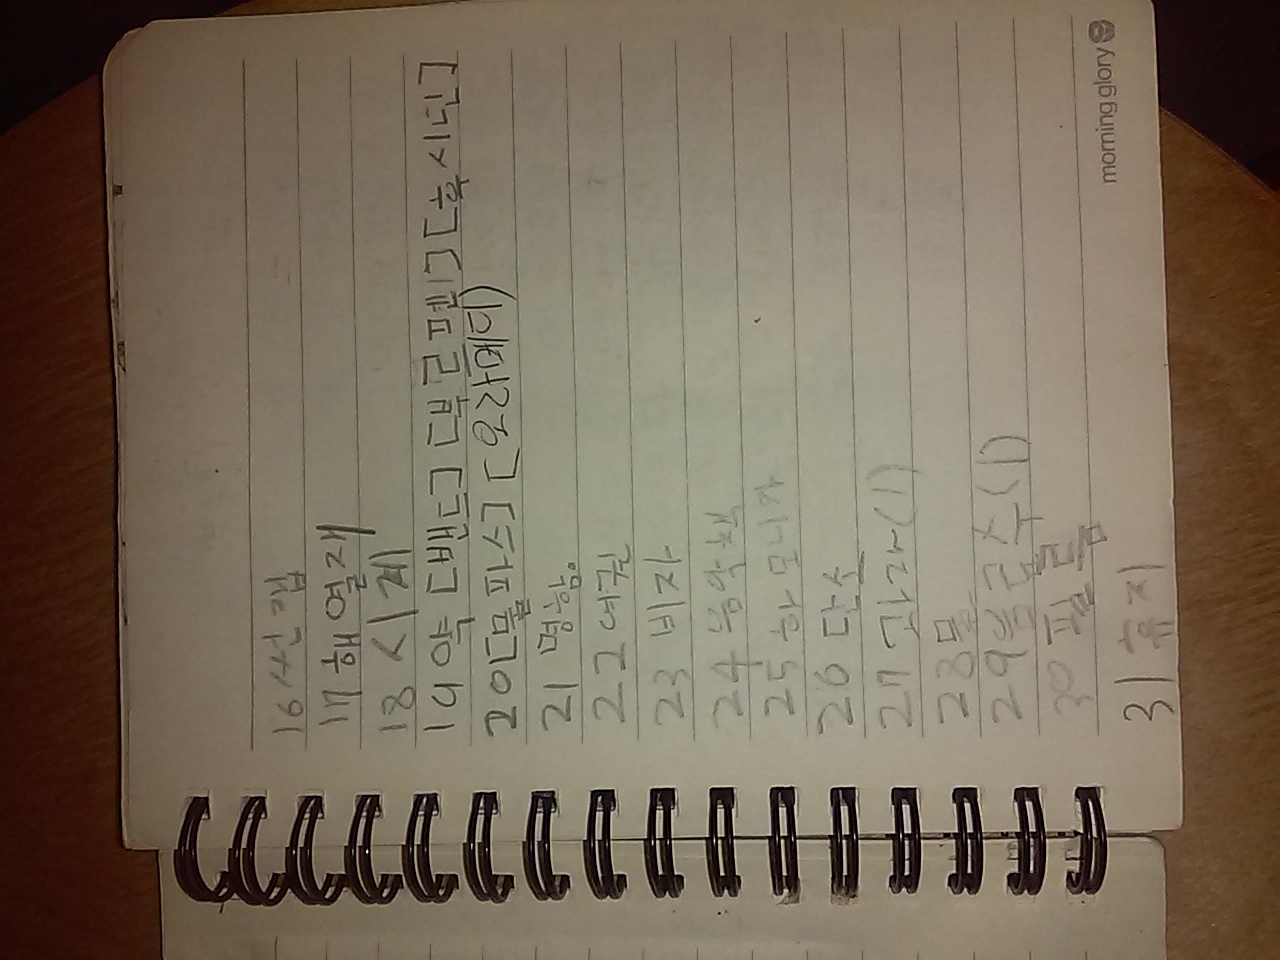 16 썬캡
17 해열재
18 시계
19 약 [밴드] [부르펜] [후시딘]
20 [물파스] [오라메디)
21 명함.
22 여권
23 비자
24 음악책
25 하모니카
26 단소
27 과자(1)
28 물
29 음료수(1)
30 필름
31 휴지
morning glory